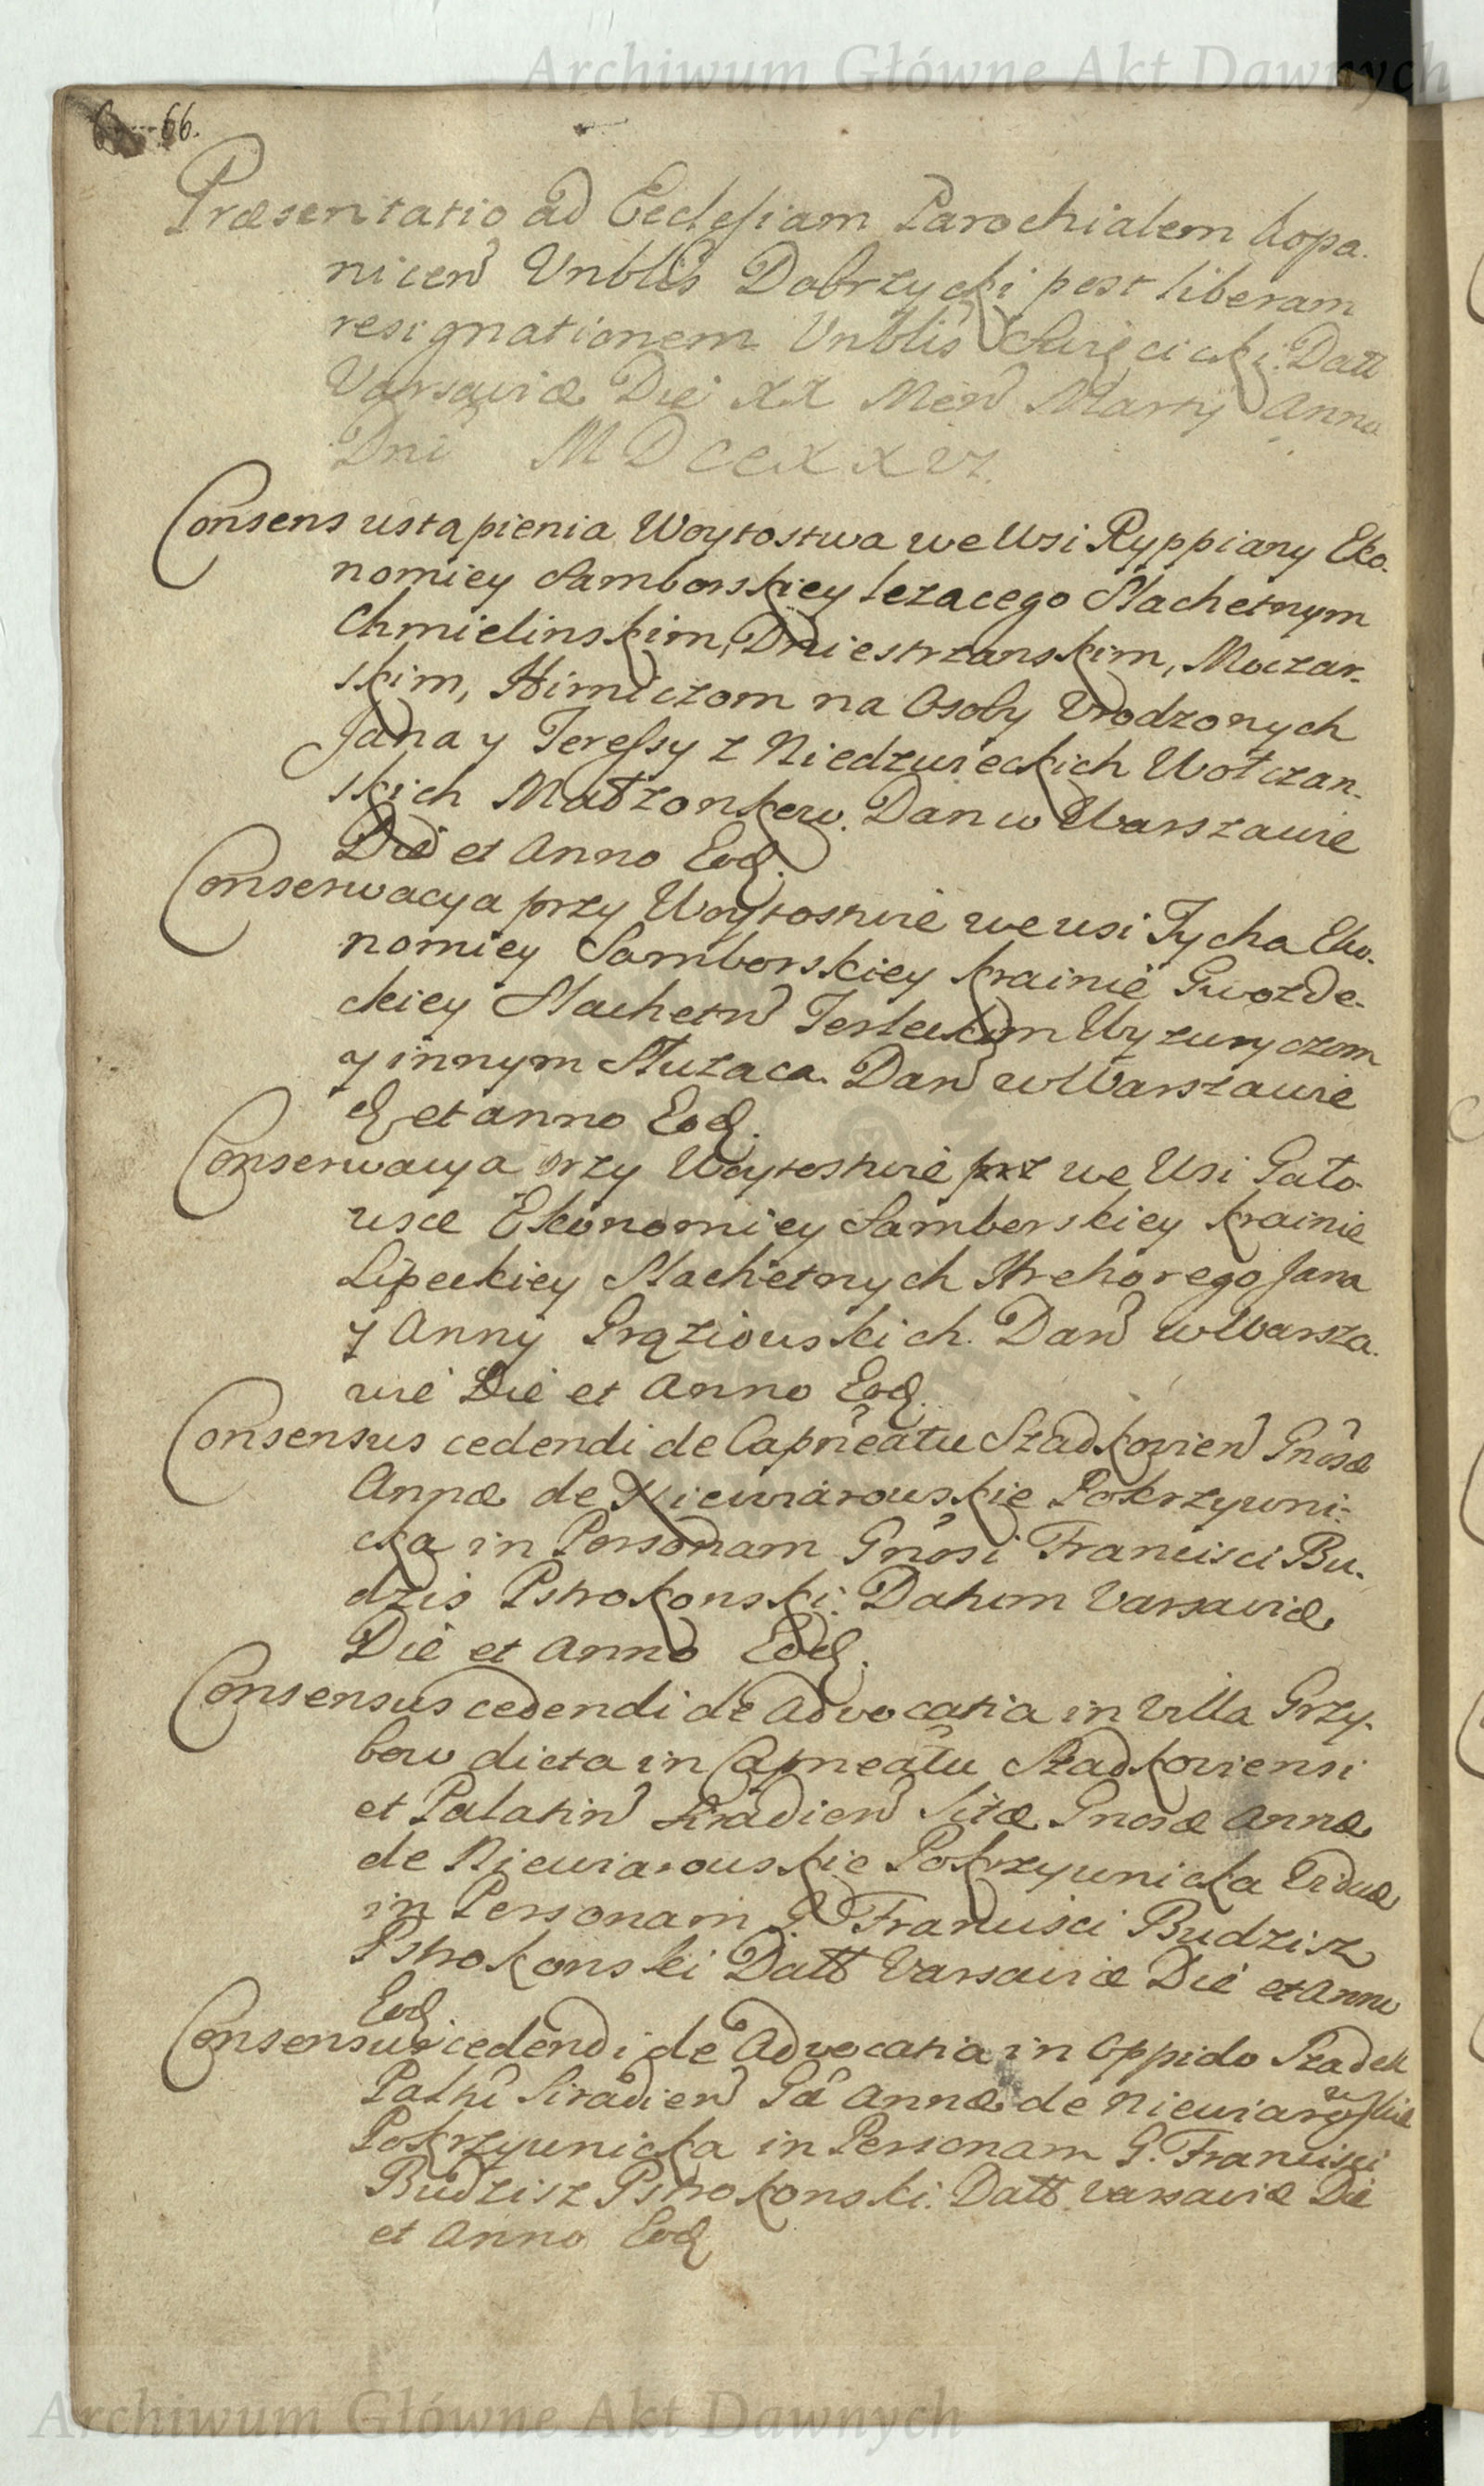 Archiwum Główne Akt Dawnych
66.
Præsentatio ad Ecclesiam Parochialem Kopa.
nicen Vnblis Dobrzycki post liberam
resignationem Vnblis Swięcicki. Datt
Varsaviæ Die XX Men Martij Anno
Dni MDCCXXVI.
Consens ustąpienia Woytostwa we Wsi Ryppiany Eko.
nomiey Samborskiey lezacego Slachetnym
Chmielinskim, Dniestrzanskim, Moczar.
skim, Hirniczom na Osoby Vrodzonych
Jana y Teressy z Niedzwieckich Wołczan.
skich Małzonkow. Dan w Warszawie
Die et Anno Eod.
Conserwacya przy Woytostwie we wsi Tycha Eko.
nomiey Samborskiey krainie Gwozde.
ckiey Slachetn Terleckim Wyzwryczom
y innym Słuzaca. Dan w Warszawie
d et anno Eod.
Conserwacya przy Woytostwie prz we Wsi Gało
wsce Ekonomiey Samborskiey krainie
Lipeckiey Slachetnych Hrehorego Jana
y Anny Grąziowskich. Dan w Warsza.
wie Die et Anno Eod.
Consensus cedendi de Capneatu Szadkovien Gnosæ
Annæ de Niewiarowskie Pokrzywni.
cka in Personam Gnosi Francisci Bu.
dzis Pstrokonski. Datum Varsaviæ
Die et Anno Eod.
Consensus cedendi de Advocatia in Villa Grzy.
bow dicta in Capneatu Szadkoviensi
et Palatin Siradien Sitæ Gnosæ Annæ
de Niewiarowskie Pokrzywnicka Viduæ
in Personam G. Francisci Budzisz
Pstrokonski Datt Varsaviæ Die et Anno
Eod.
Consensus cedendi de Advocatia in Oppido Szadek
Palnt Siradien Gæ Annæ de Niewiarowskie
Pokrzywnicka in Personam G. Francisci
Budzisz Pstrokonski. Datt Varsaviæ Die
et Anno Eod
Archiwum Główne Akt Dawnych